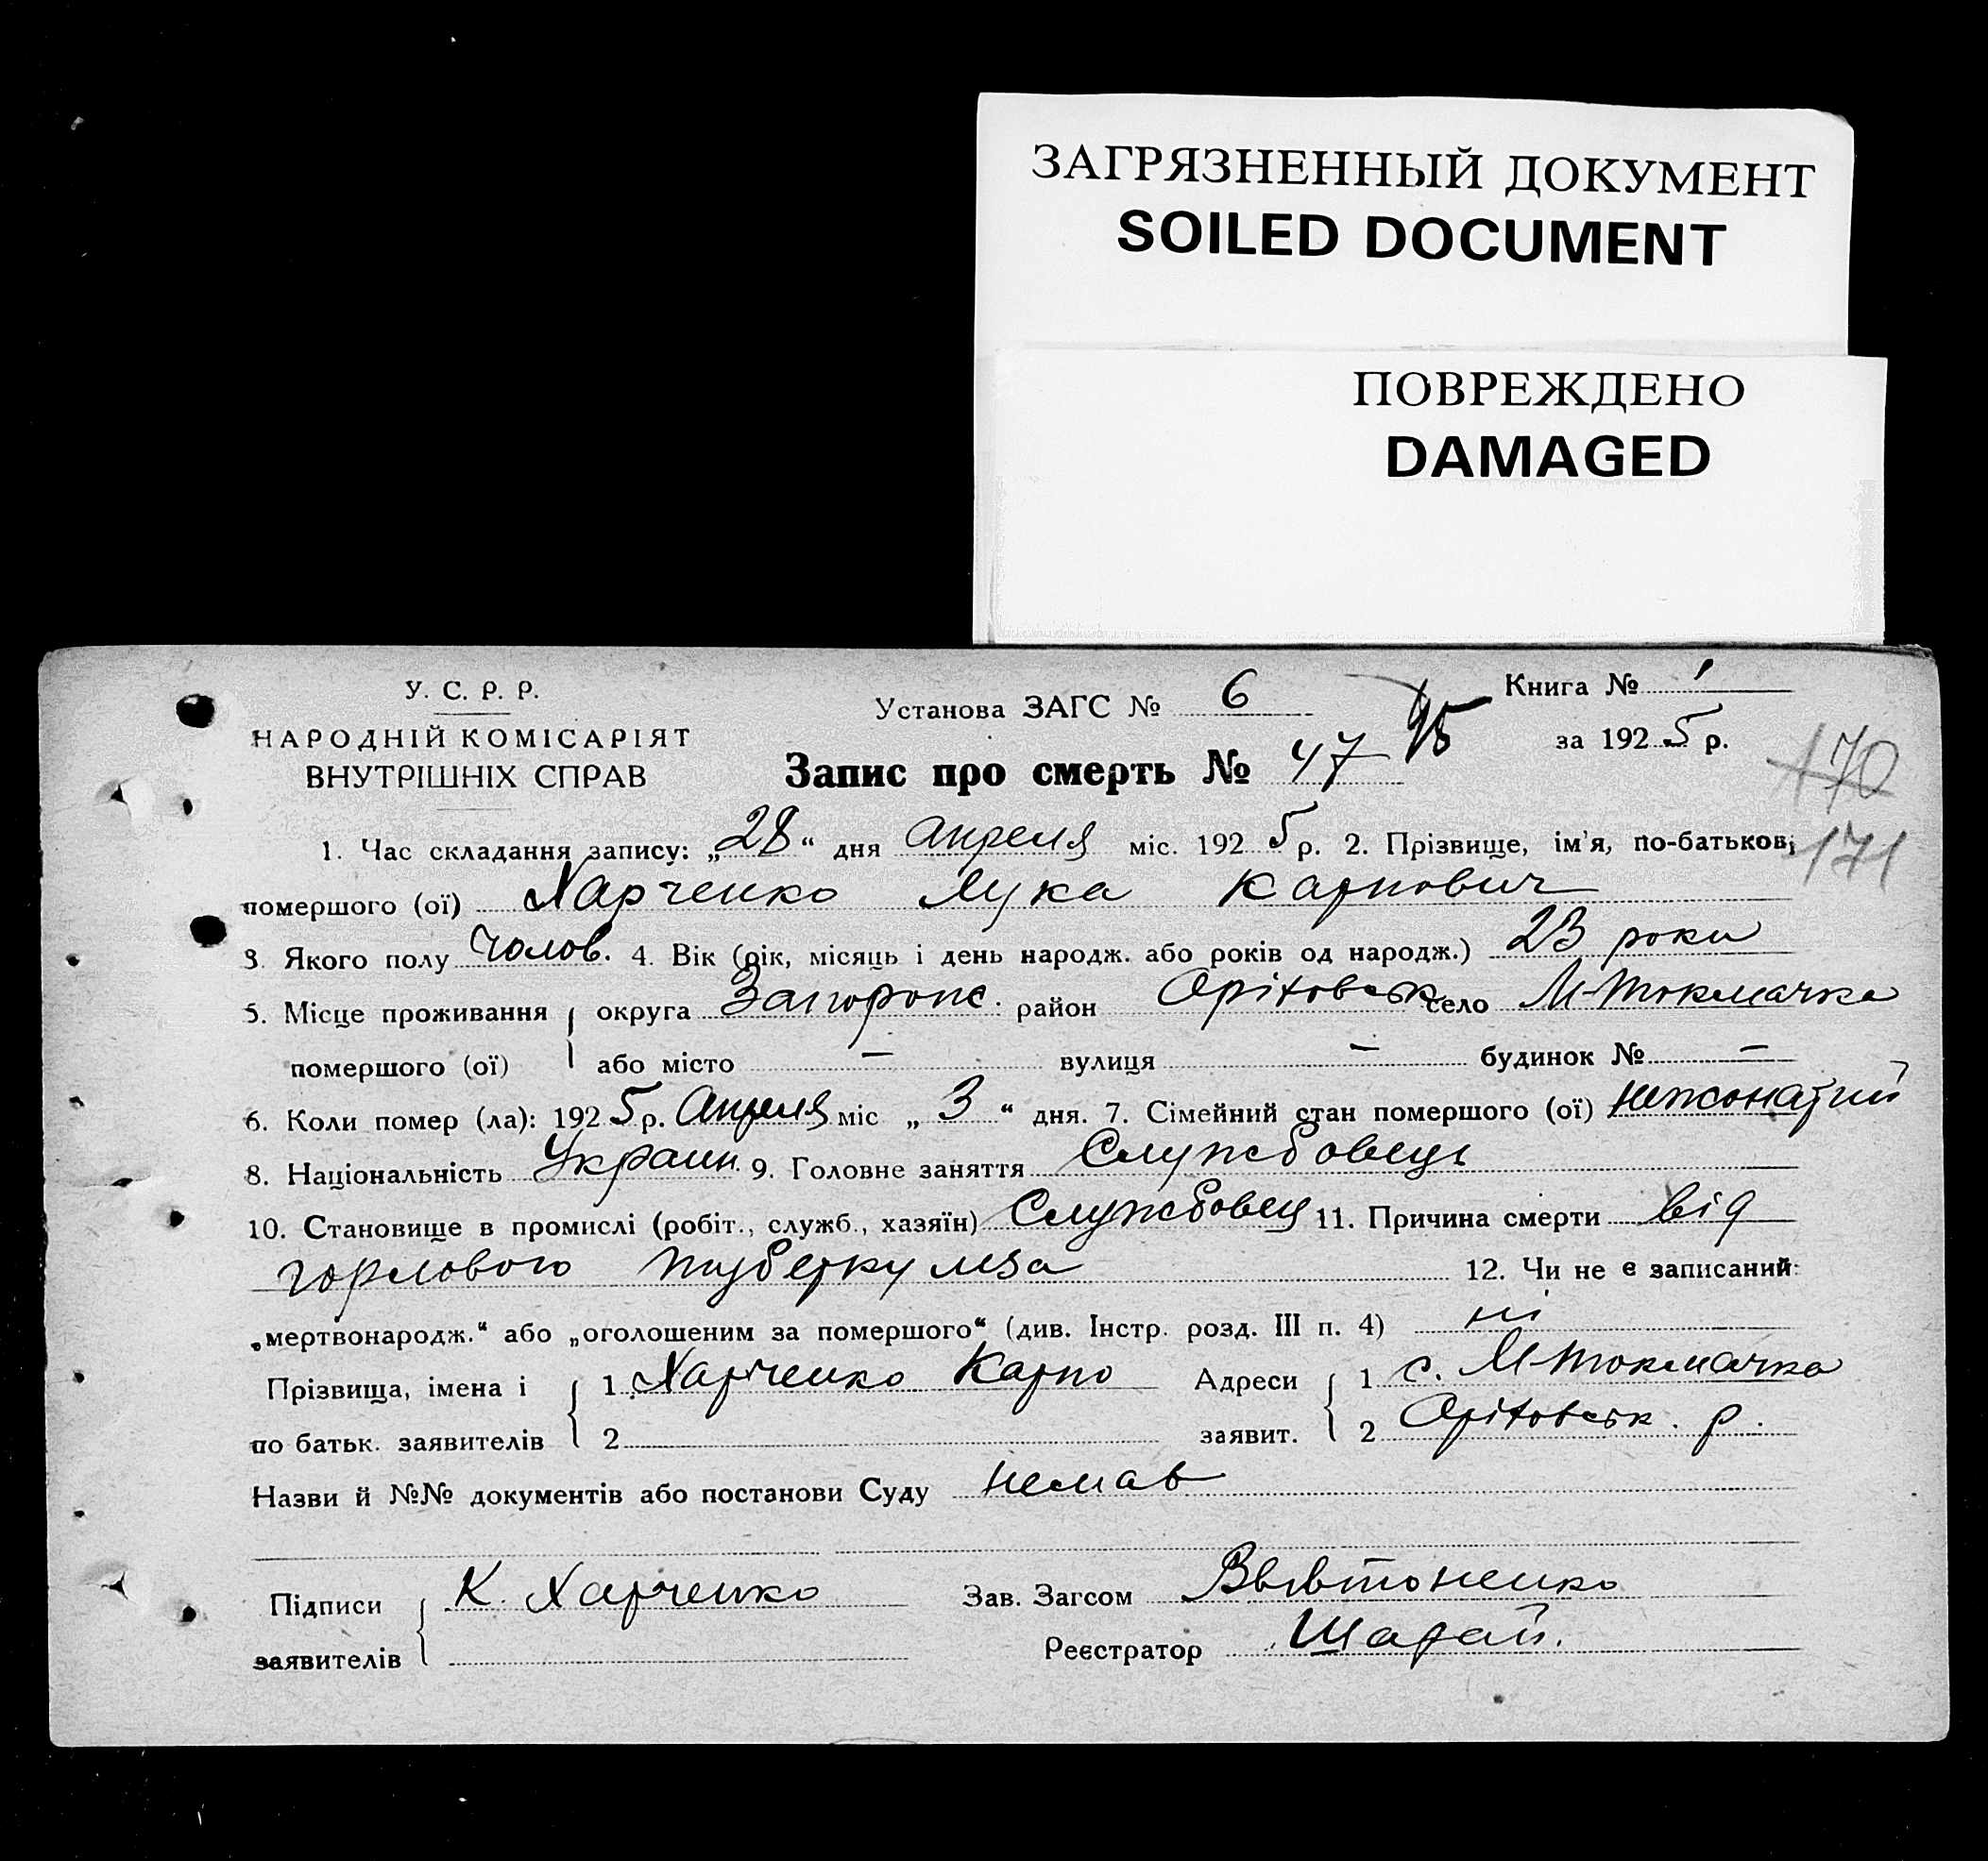 ЗАГРЯЗНЕННЫЙ ДОКУМЕНТ
SOILED DOCUMENT
ПОВРЕЖДЕНО
DAMAGED
У. С. Р. Р.
НАРОДНІЙ КОМІСАРІЯТ
ВНУТРІШНІХ СПРАВ
Установа ЗАГС № 6
Книга № 1
за 1925 р.
Запис про смерть № 47
170
171
1. Час складання запису: „28“ дня Апреля міс. 1925 р. 2. Прізвище, ім'я, по-батькові
помершого (ої) Харченко Лука Карпович
3. Якого полу Чолов. 4. Вік (рік, місяць і день народж. або років од народж.) 23 роки
5. Місце проживання округа Запорож. район Оріховськ село М-Токмачка
помершого (ої) або місто — вулиця — будинок № —
6. Коли помер (ла): 1925 р. Апреля міс „3“ дня. 7. Сімейний стан помершого (ої) нежонатий
8. Національність Украин. 9. Головне заняття Службовець
10. Становище в промислі (робіт., служб., хазяїн) Службовец 11. Причина смерти від
горлового туберкульоза 12. Чи не є записаний:
„мертвонародж.“ або „оголошеним за помершого“ (див. Інстр. розд. III п. 4) ні
Прізвища, імена і 1 Харченко Карпо Адреси 1 с. М-Токмачка
по батьк. заявителів 2 заявит. 2 Оріховськ. р.
Назви й №№ документів або постанови Суду немає
Підписи К. Харченко Зав. Загсом
заявителів Реєстратор Шарай.